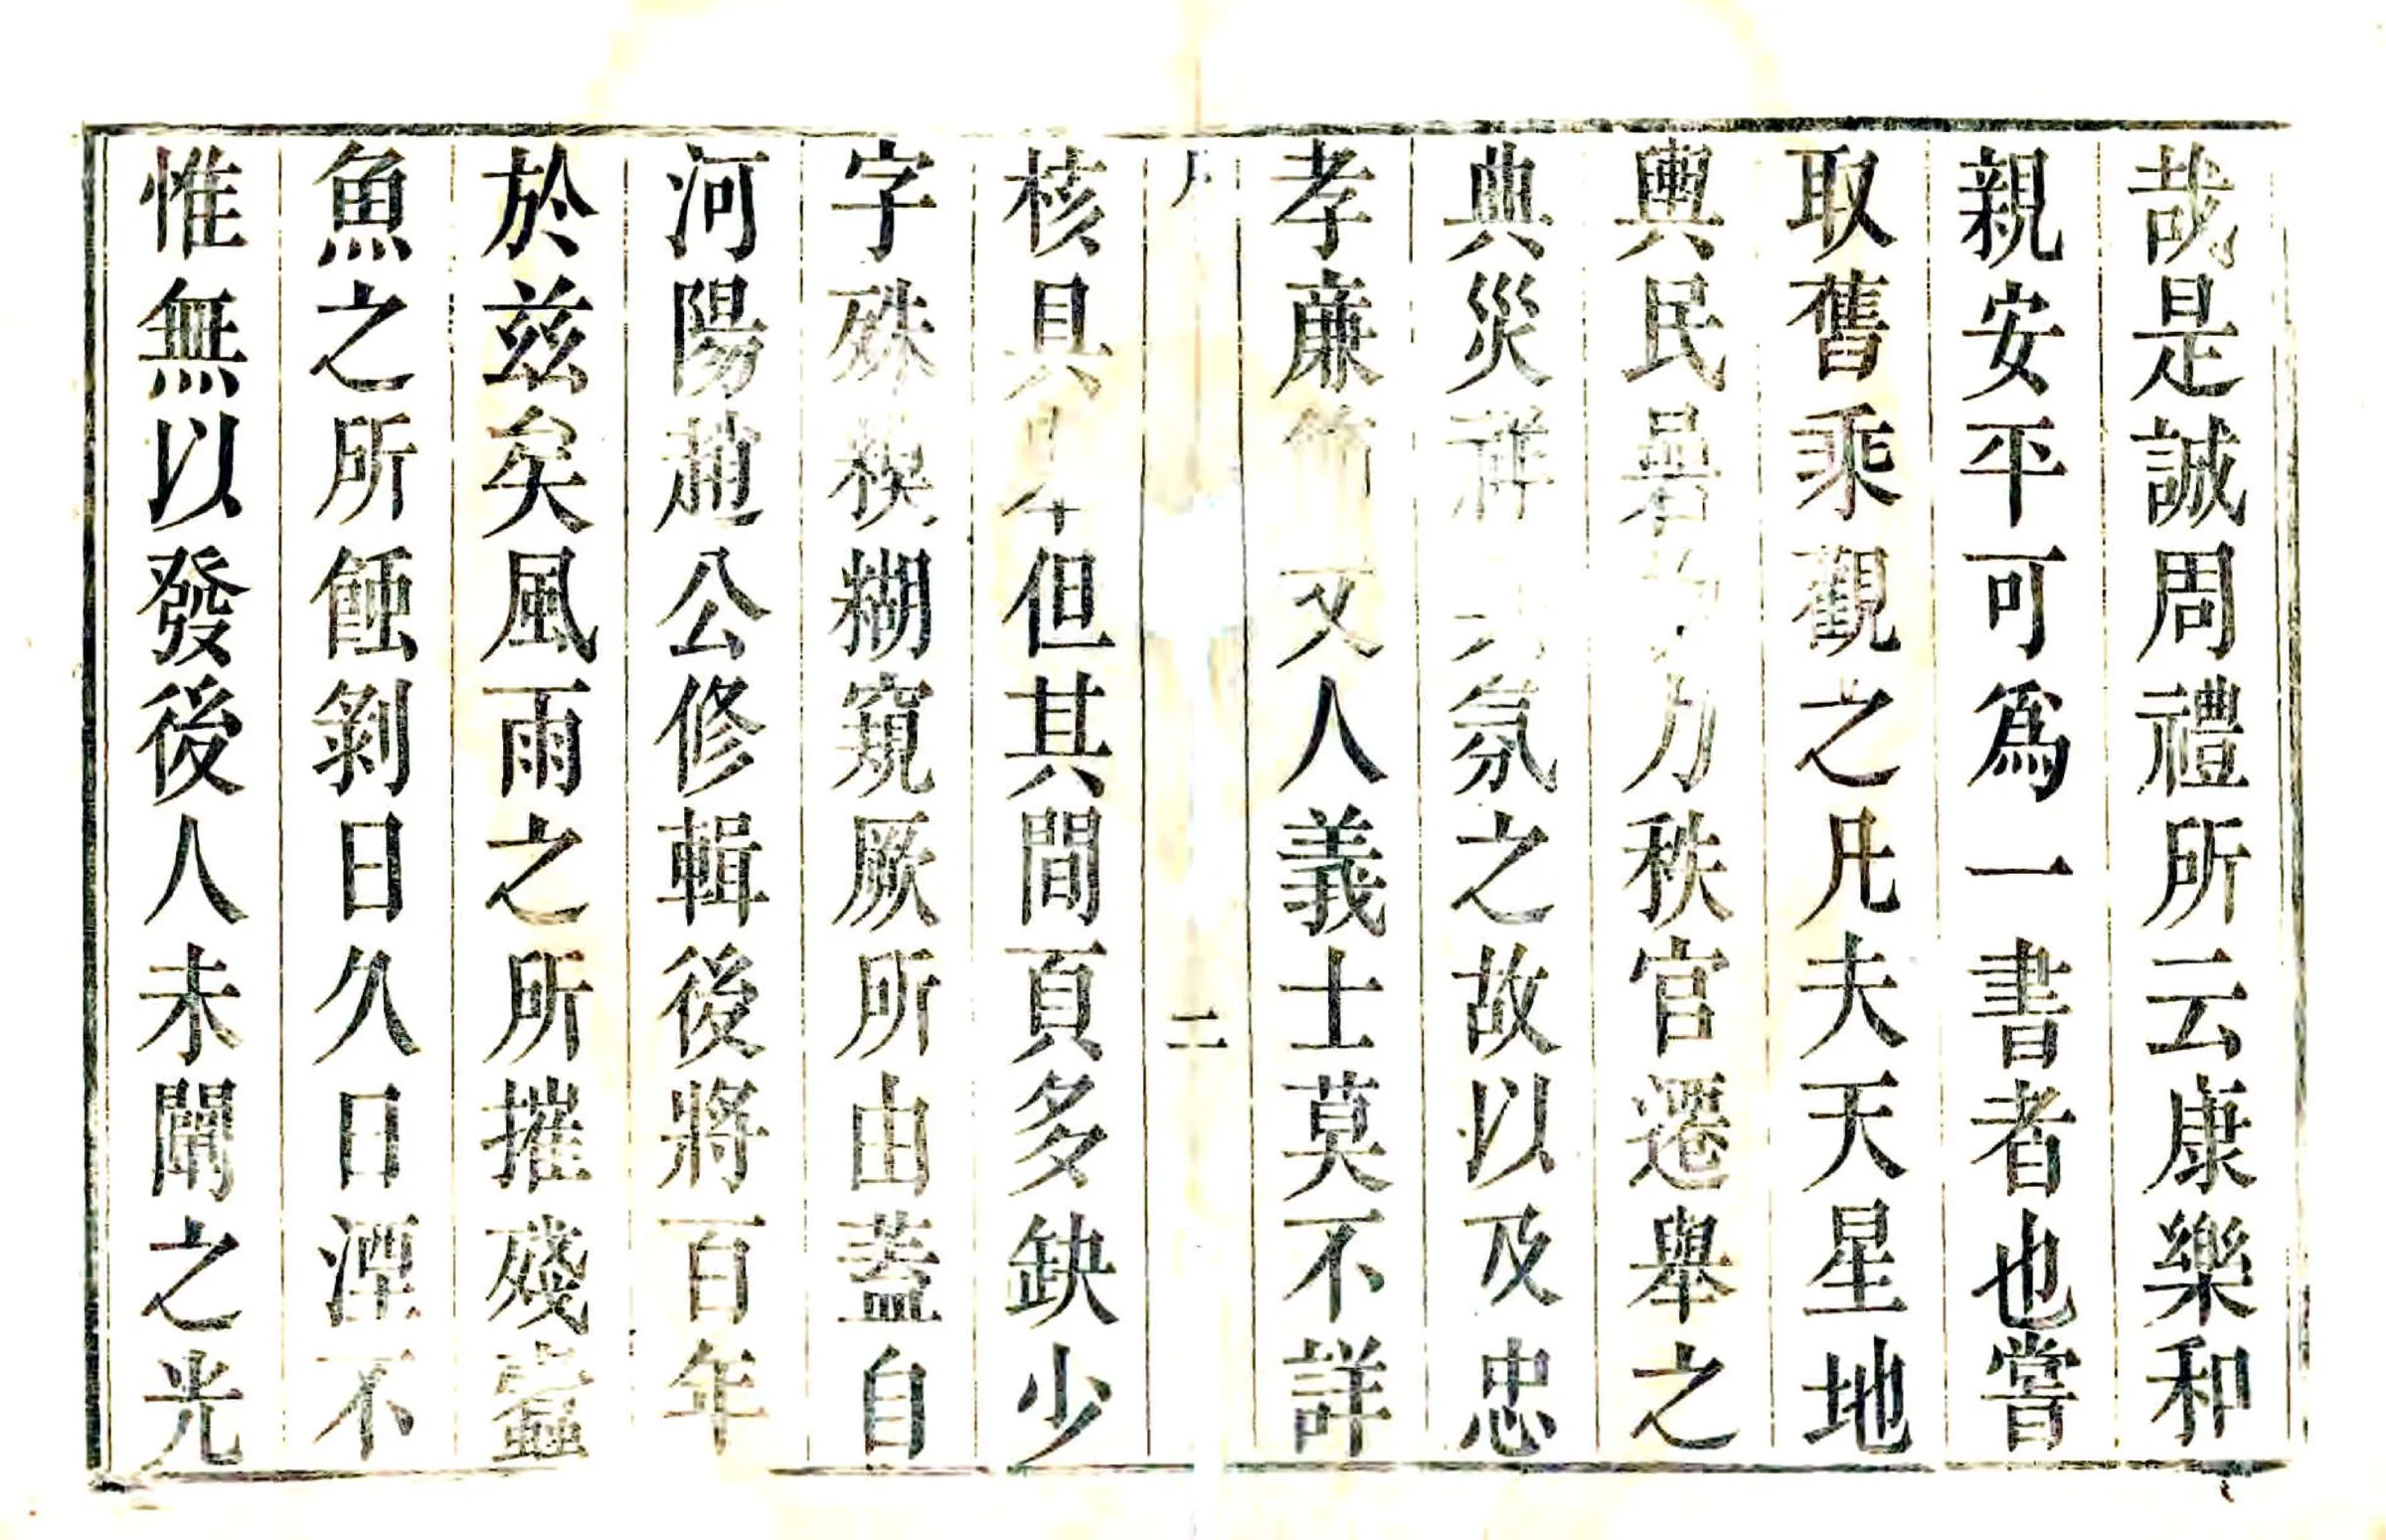 哉是誠周禮所云康樂和
親安平可爲一書者也嘗
取舊乘觀之凡夫天星地
輿民力秩官遷舉之
典災祥氛之故以及忠
孝廉文人義士莫不詳
二
核具但其間頁多缺少
字殊模糊窺厥所由蓋自
河陽趙公修輯後將百年
於茲矣風雨之所摧殘蠹
魚之所蝕剝日久日湮不
惟無以發後人未闡之光